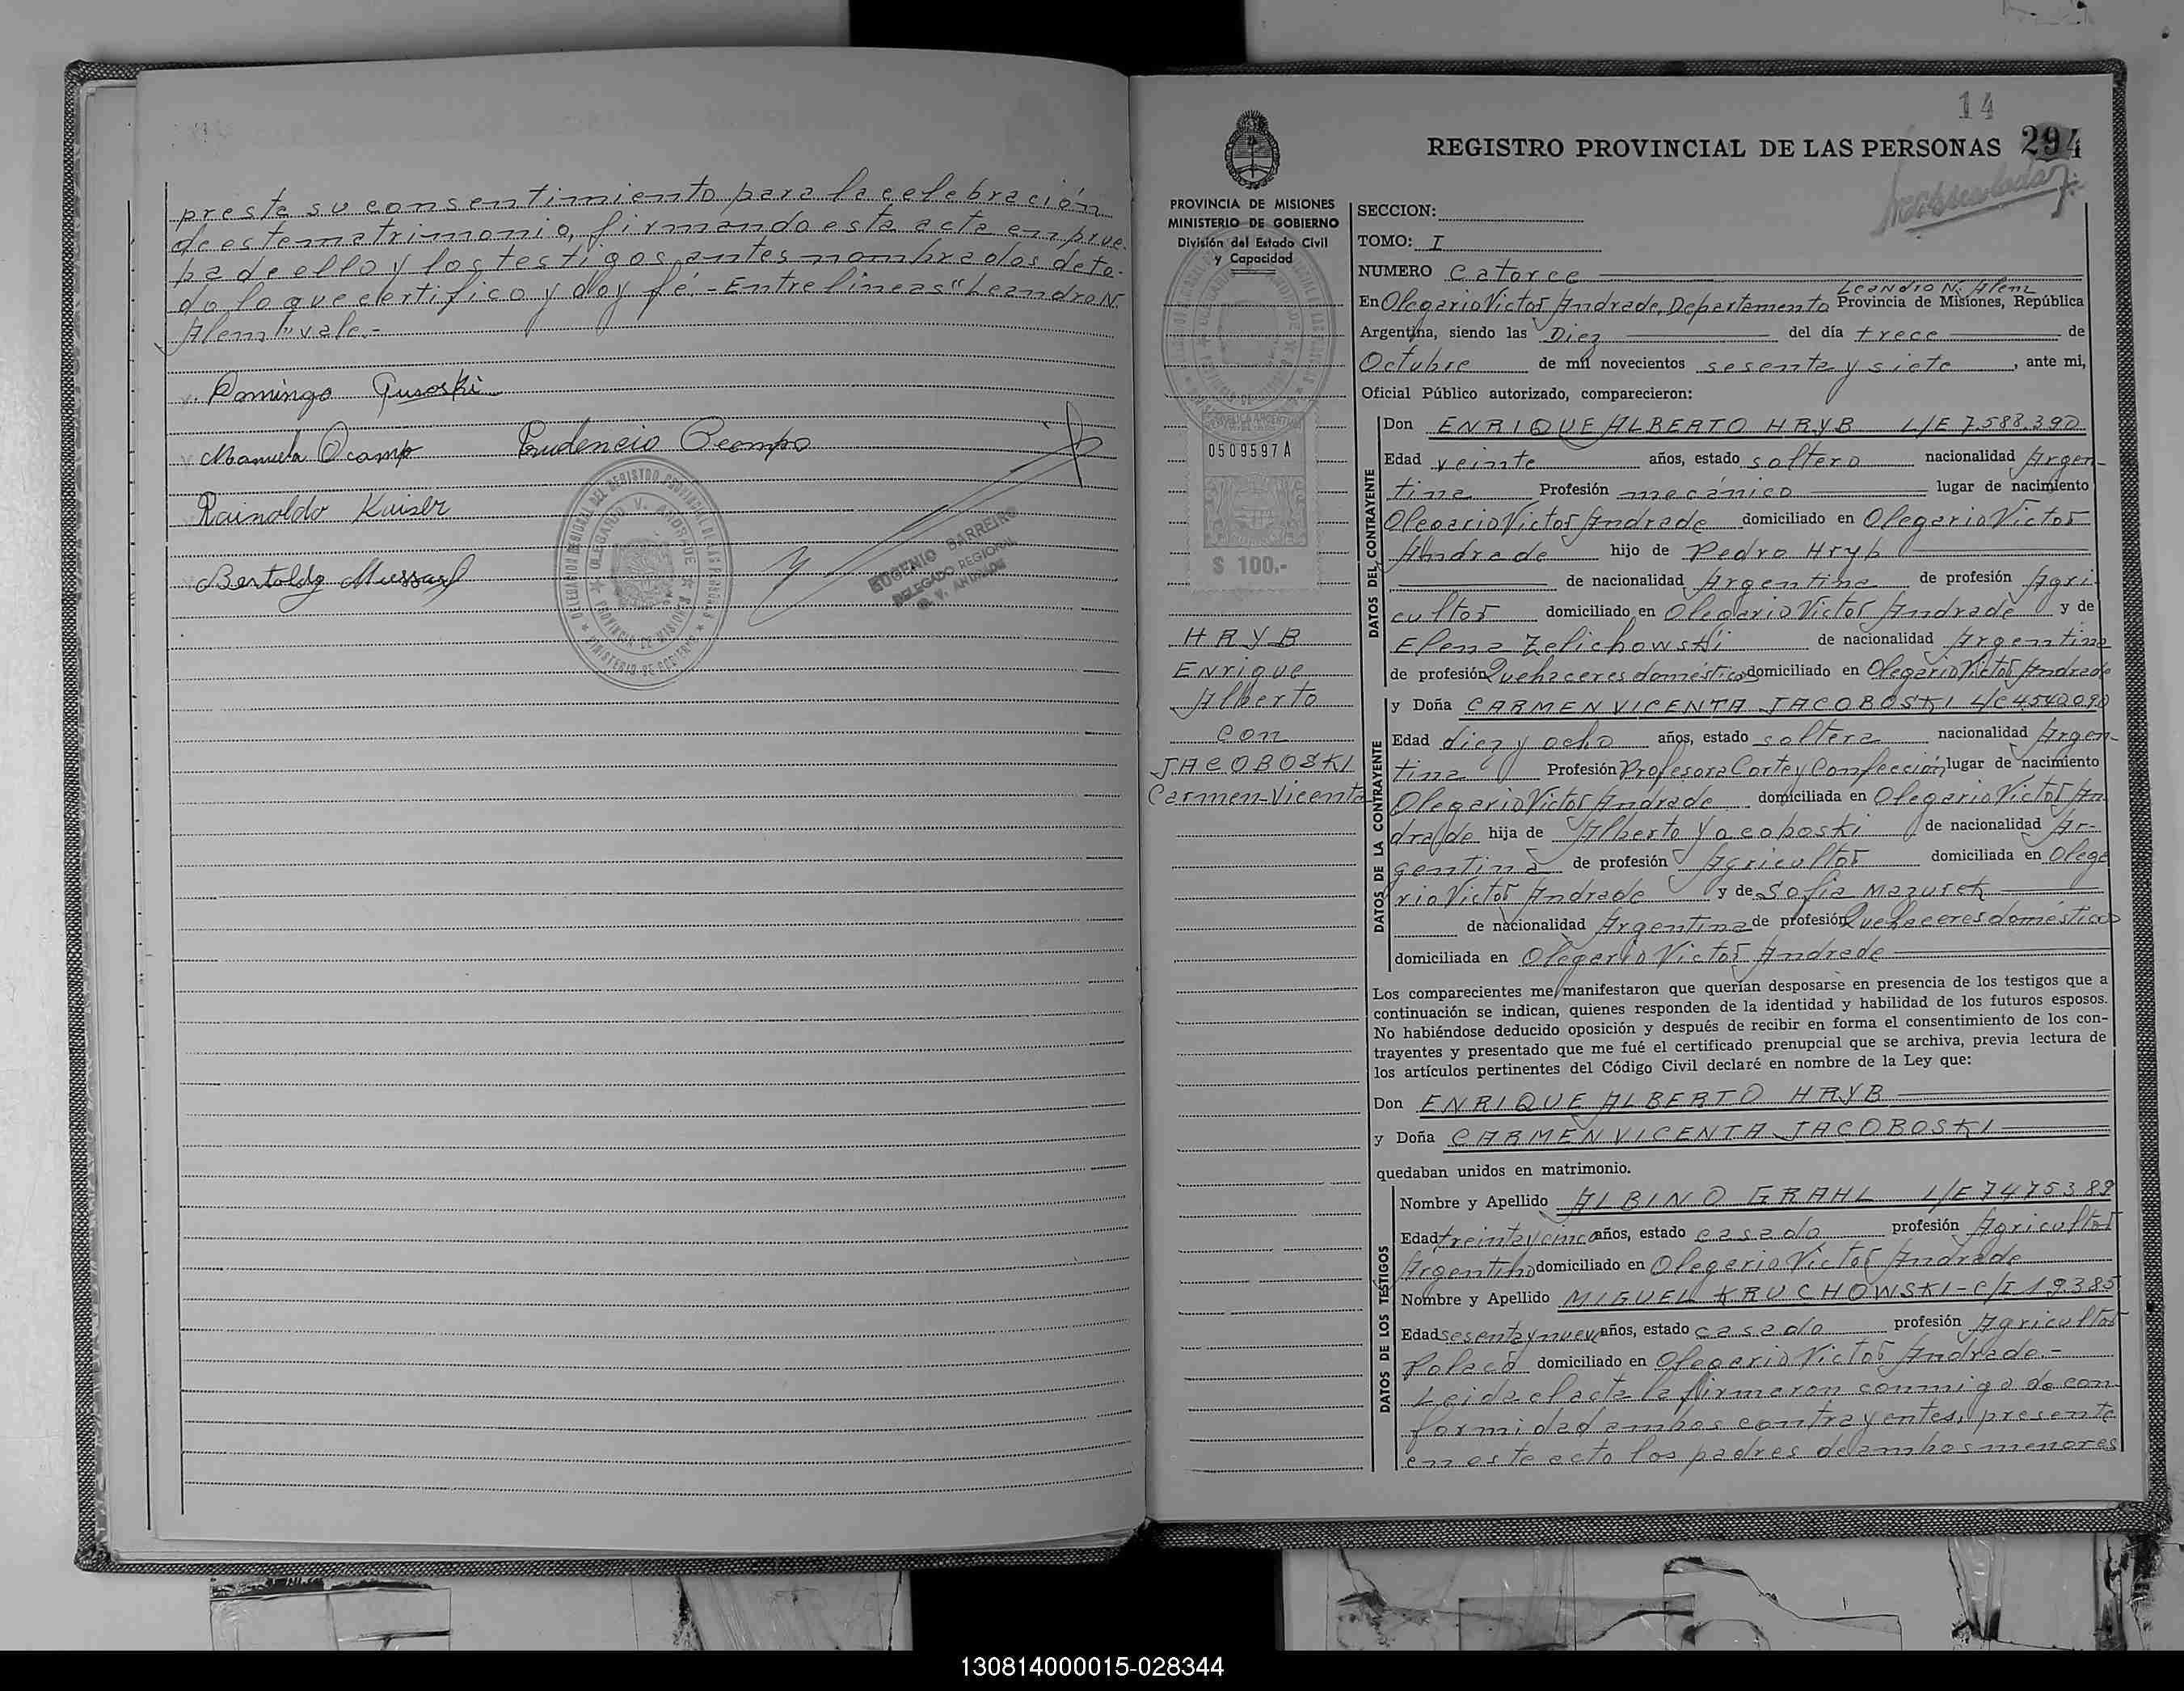 preste su consentimiento para la celebración
de este matrimonio, firmando esta acta en prue-
ba de ello y los testigos antes nombrados de to-
do lo que certifico y doy fé.- Entre líneas "Leandro N.
Alem" vale.-
Domingo
Manuela Ocamp Prudencio Ocampo
Rainoldo Kaiser
Bertoldo
DELEGACION REGIONAL DEL REGISTRO PROVINCIAL DE LAS PERSONAS
OLEGARIO V. ANDRADE
PROVINCIA DE MISIONES
MINISTERIO DE GOBIERNO
EUGENIO BARREIRO
DELEGADO REGIONAL
O. V. ANDRADE
14
REGISTRO PROVINCIAL DE LAS PERSONAS 294
PROVINCIA DE MISIONES
MINISTERIO DE GOBIERNO
División del Estado Civil
y Capacidad
REPUBLICA ARGENTINA
0509597A
$ 100.-
HRYB
Enrique
Alberto
con
JACOBOSKI
Carmen-Vicenta
SECCION:
TOMO: I
NUMERO Catorce
Leandro N. Alem
En Olegario Victor Andrade, Departamento Provincia de Misiones, República
Argentina, siendo las Diez del día trece de
Octubre de mil novecientos sesenta y siete, ante mi,
Oficial Público autorizado, comparecieron:
DATOS DEL CONTRAYENTE
Don ENRIQUE ALBERTO HRYB L/E 7.588.390
Edad veinte años, estado soltero nacionalidad Argen-
tina Profesión mecánico lugar de nacimiento
Olegario Victor Andrade domiciliado en Olegario Victor
Andrade hijo de Pedro Hryb
de nacionalidad Argentina de profesión Agri-
cultor domiciliado en Olegario Victor Andrade y de
Elena Zelichowski de nacionalidad Argentina
de profesión Quehaceres domésticos domiciliado en Olegario Victor Andrade
DATOS DE LA CONTRAYENTE
y Doña CARMEN VICENTA JACOBOSKI L/C 4540090
Edad diez y ocho años, estado soltera nacionalidad Argen-
tina Profesión Profesora Corte y Confección lugar de nacimiento
Olegario Victor Andrade domiciliada en Olegario Victor An-
drade hija de Alberto Yacoboski de nacionalidad Ar-
gentina de profesión Agricultor domiciliada en Olega
rio Victor Andrade y de Sofia Mazurek
de nacionalidad Argentina de profesión Quehaceres domésticos
domiciliada en Olegario Victor Andrade
Los comparecientes me manifestaron que querían desposarse en presencia de los testigos que a
continuación se indican, quienes responden de la identidad y habilidad de los futuros esposos.
No habiéndose deducido oposición y después de recibir en forma el consentimiento de los con-
trayentes y presentado que me fué el certificado prenupcial que se archiva, previa lectura de
los artículos pertinentes del Código Civil declaré en nombre de la Ley que:
Don ENRIQUE ALBERTO HRYB
y Doña CARMEN VICENTA JACOBOSKI
quedaban unidos en matrimonio.
DATOS DE LOS TESTIGOS
Nombre y Apellido ALBINO GRAHL L/E 7475389
Edad treinta y cinco años, estado casado profesión Agricultor
Argentino domiciliado en Olegario Victor Andrade
Nombre y Apellido MIGUEL KRUCHOWSKI-C/I 19.385
Edad sesenta y nueve años, estado casado profesión Agricultor
Polaco domiciliado en Olegario Victor Andrade.-
Leida el acta la firmaron conmigo de con
formidad ambos contrayentes, presente
en este acto los padres de ambos menores
130814000015-028344